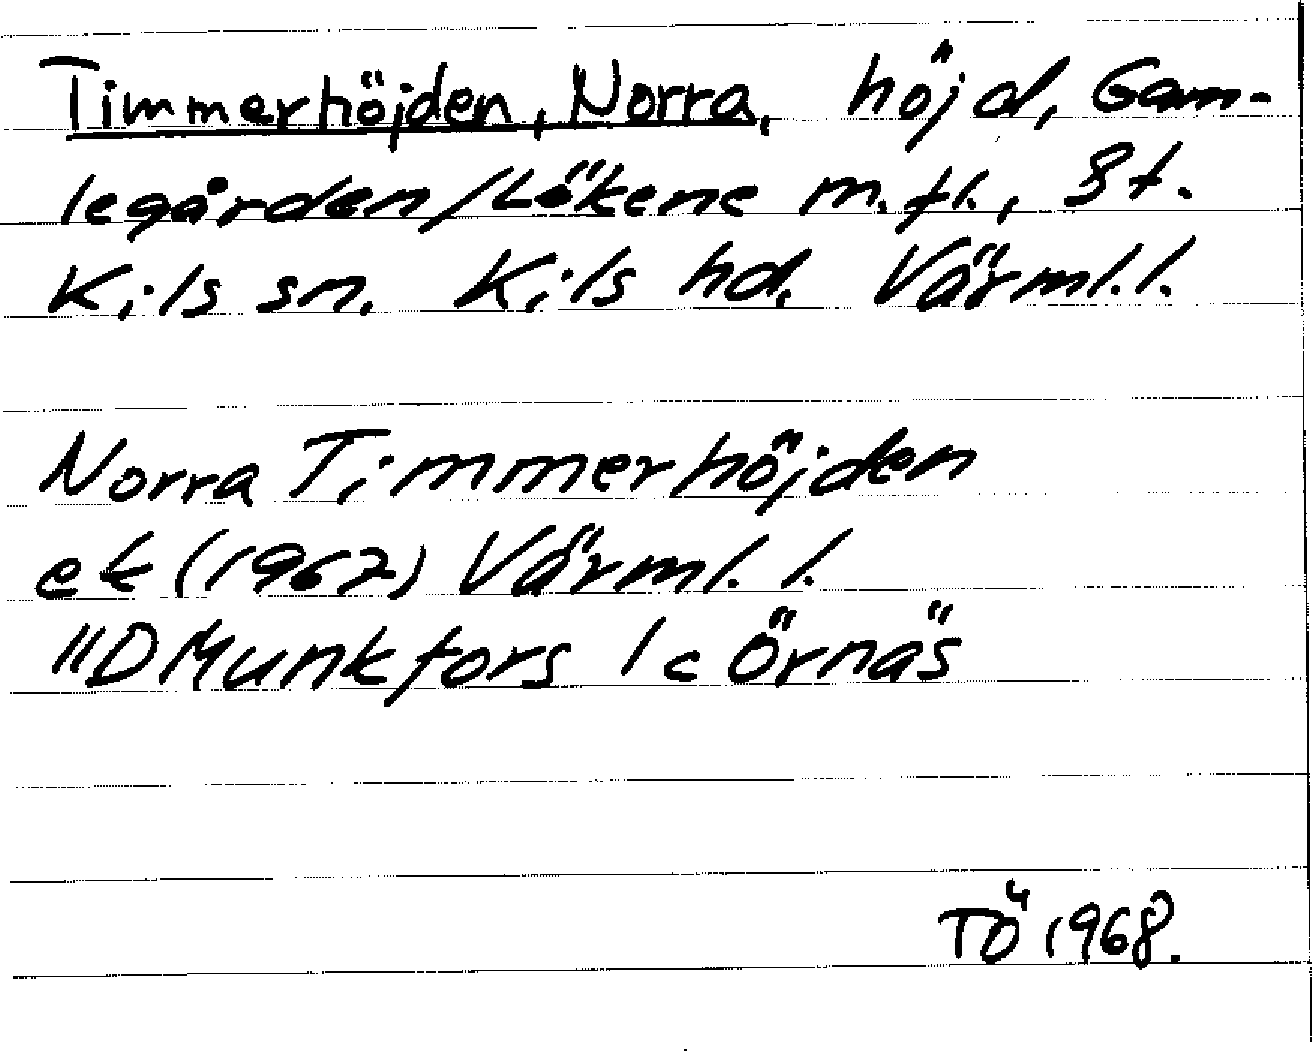 Timmerhöjden, Norra, höjd, Gam-
legården/Lökene m.fl., St.
Kils sn. Kils hd. Värml.l.
Norra Timmerhöjden
ek (1967) Värml. l.
11D Munkfors 1c Örnäs
TÖ 1968.